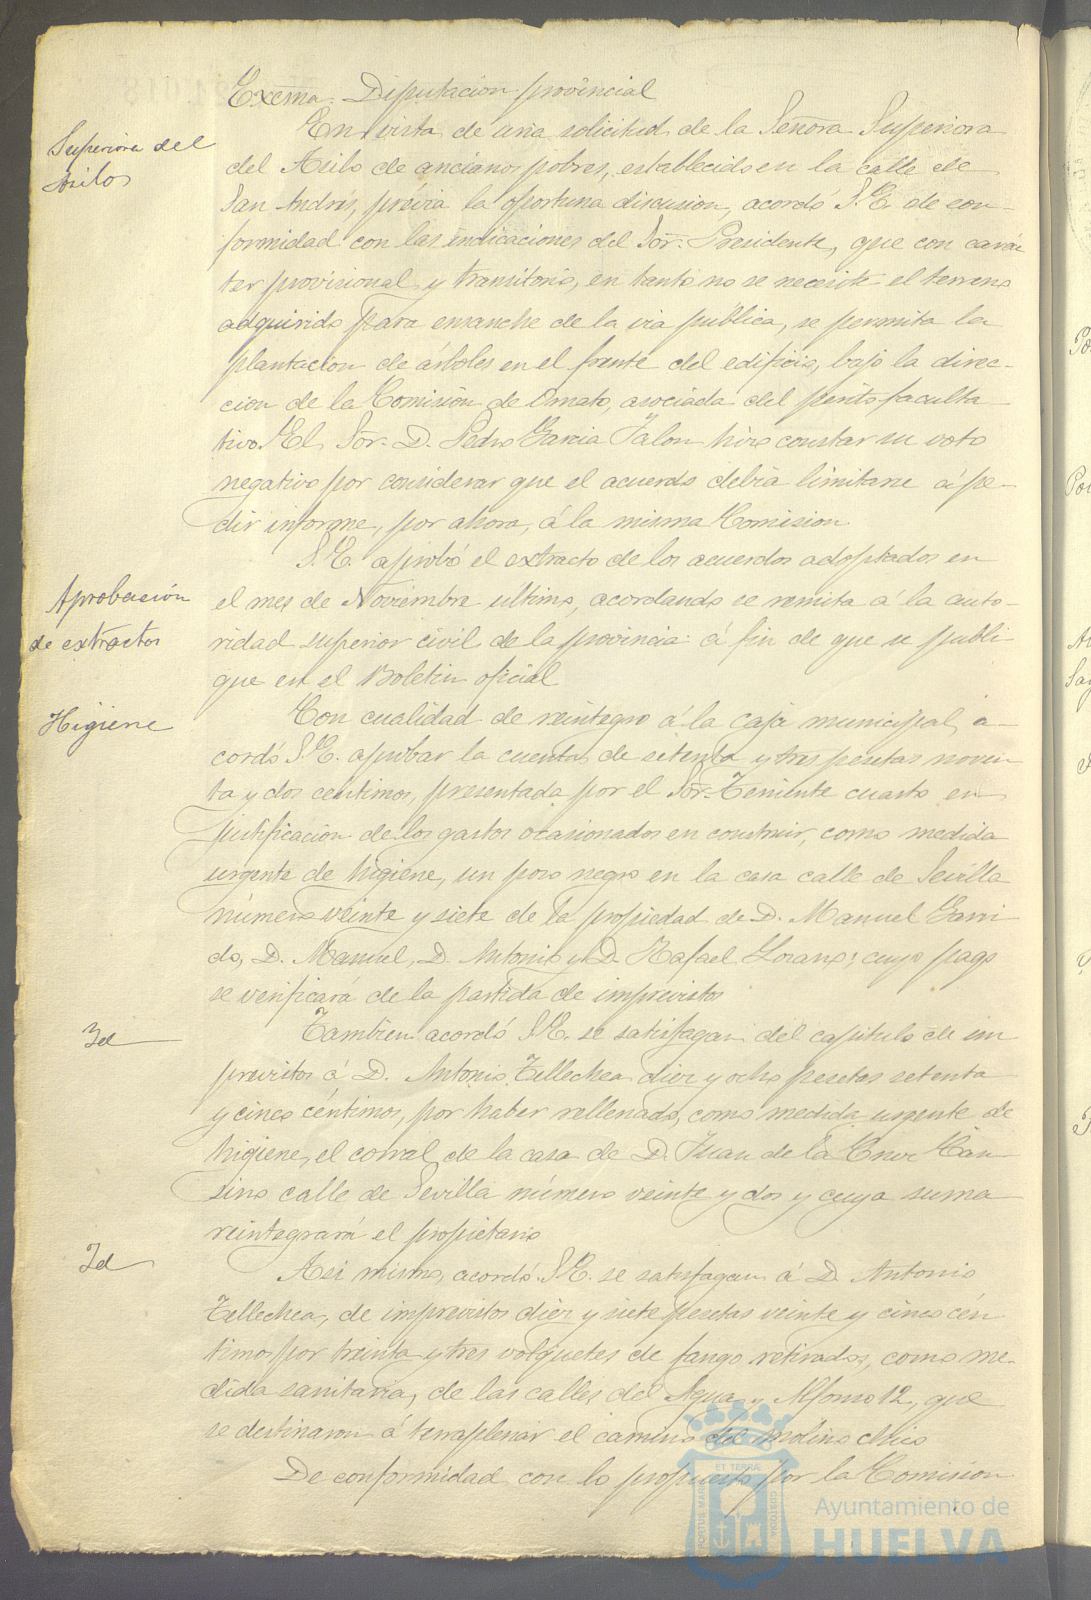 Excma. Diputacion provincial
Superiora del
Asilo
En vista de una solicitud de la Señora Superiora
del Asilo de ancianos pobres, establecido en la calle de
San Andrés, prévia la oportuna discusion, acordó S.E. de con-
formidad con las indicaciones del Sor. Presidente, que con carác
ter provisional y transitorio, en tanto no se necesite el terreno
adquirido para ensanche de la via pública, se permita la
plantacion de árboles en el frente del edificio, bajo la direc-
cion de la Comisión de Ornato, asociada del perito faculta
tivo. El Sor. D. Pedro Garcia Jalon hizo constar su voto
negativo por considerar que el acuerdo debia limitarse á pe-
dir informe, por ahora, á la misma Comision
Aprobación
de extractos
S.E. aprobó el extracto de los acuerdos adoptados en
el mes de Noviembre último, acordando se remita á la auto-
ridad superior civil de la provincia á fin de que se publi
que en el Boletin oficial
Higiene
Con cualidad de reintegro á la caja municipal, a-
cordó S.E. aprobar la cuenta de setenta y tres pesetas noven
ta y dos centimos, presentada por el Sor. Teniente cuarto en
justificacion de los gastos ocasionados en construir, como medida
urgente de higiene, un pozo negro en la casa calle de Sevilla
número veinte y siete de la propiedad de D. Manuel Garri
do, D. Manuel, D. Antonio y D. Rafael Lozano; cuyo pago
se verificará de la partida de imprevistos
Id
Tambien acordó S.E. se satisfagan del capitulo de im
previstos á D. Antonio Tellechea diez y ocho pesetas setenta
y cinco céntimos, por haber rellenado, como medida urgente de
higiene, el corral de la casa de D. Juan de la Cruz Can
sino calle de Sevilla número veinte y dos y cuya suma
reintegrará el propietario
Id
Asi mismo, acordó S.E. se satisfagan á D. Antonio
Tellechea, de imprevistos diez y siete pesetas veinte y cinco cén
timos por treinta y tres volquetes de fango retirados, como me-
dida sanitaria, de las calles del Agua y Alfonso 12, que
se destinaron á terraplenar el camino del molino chico
De conformidad con lo propuesto por la Comision
PORTUS MARIS
ET TERRÆ
CUSTODIA
Ayuntamiento de
HUELVA